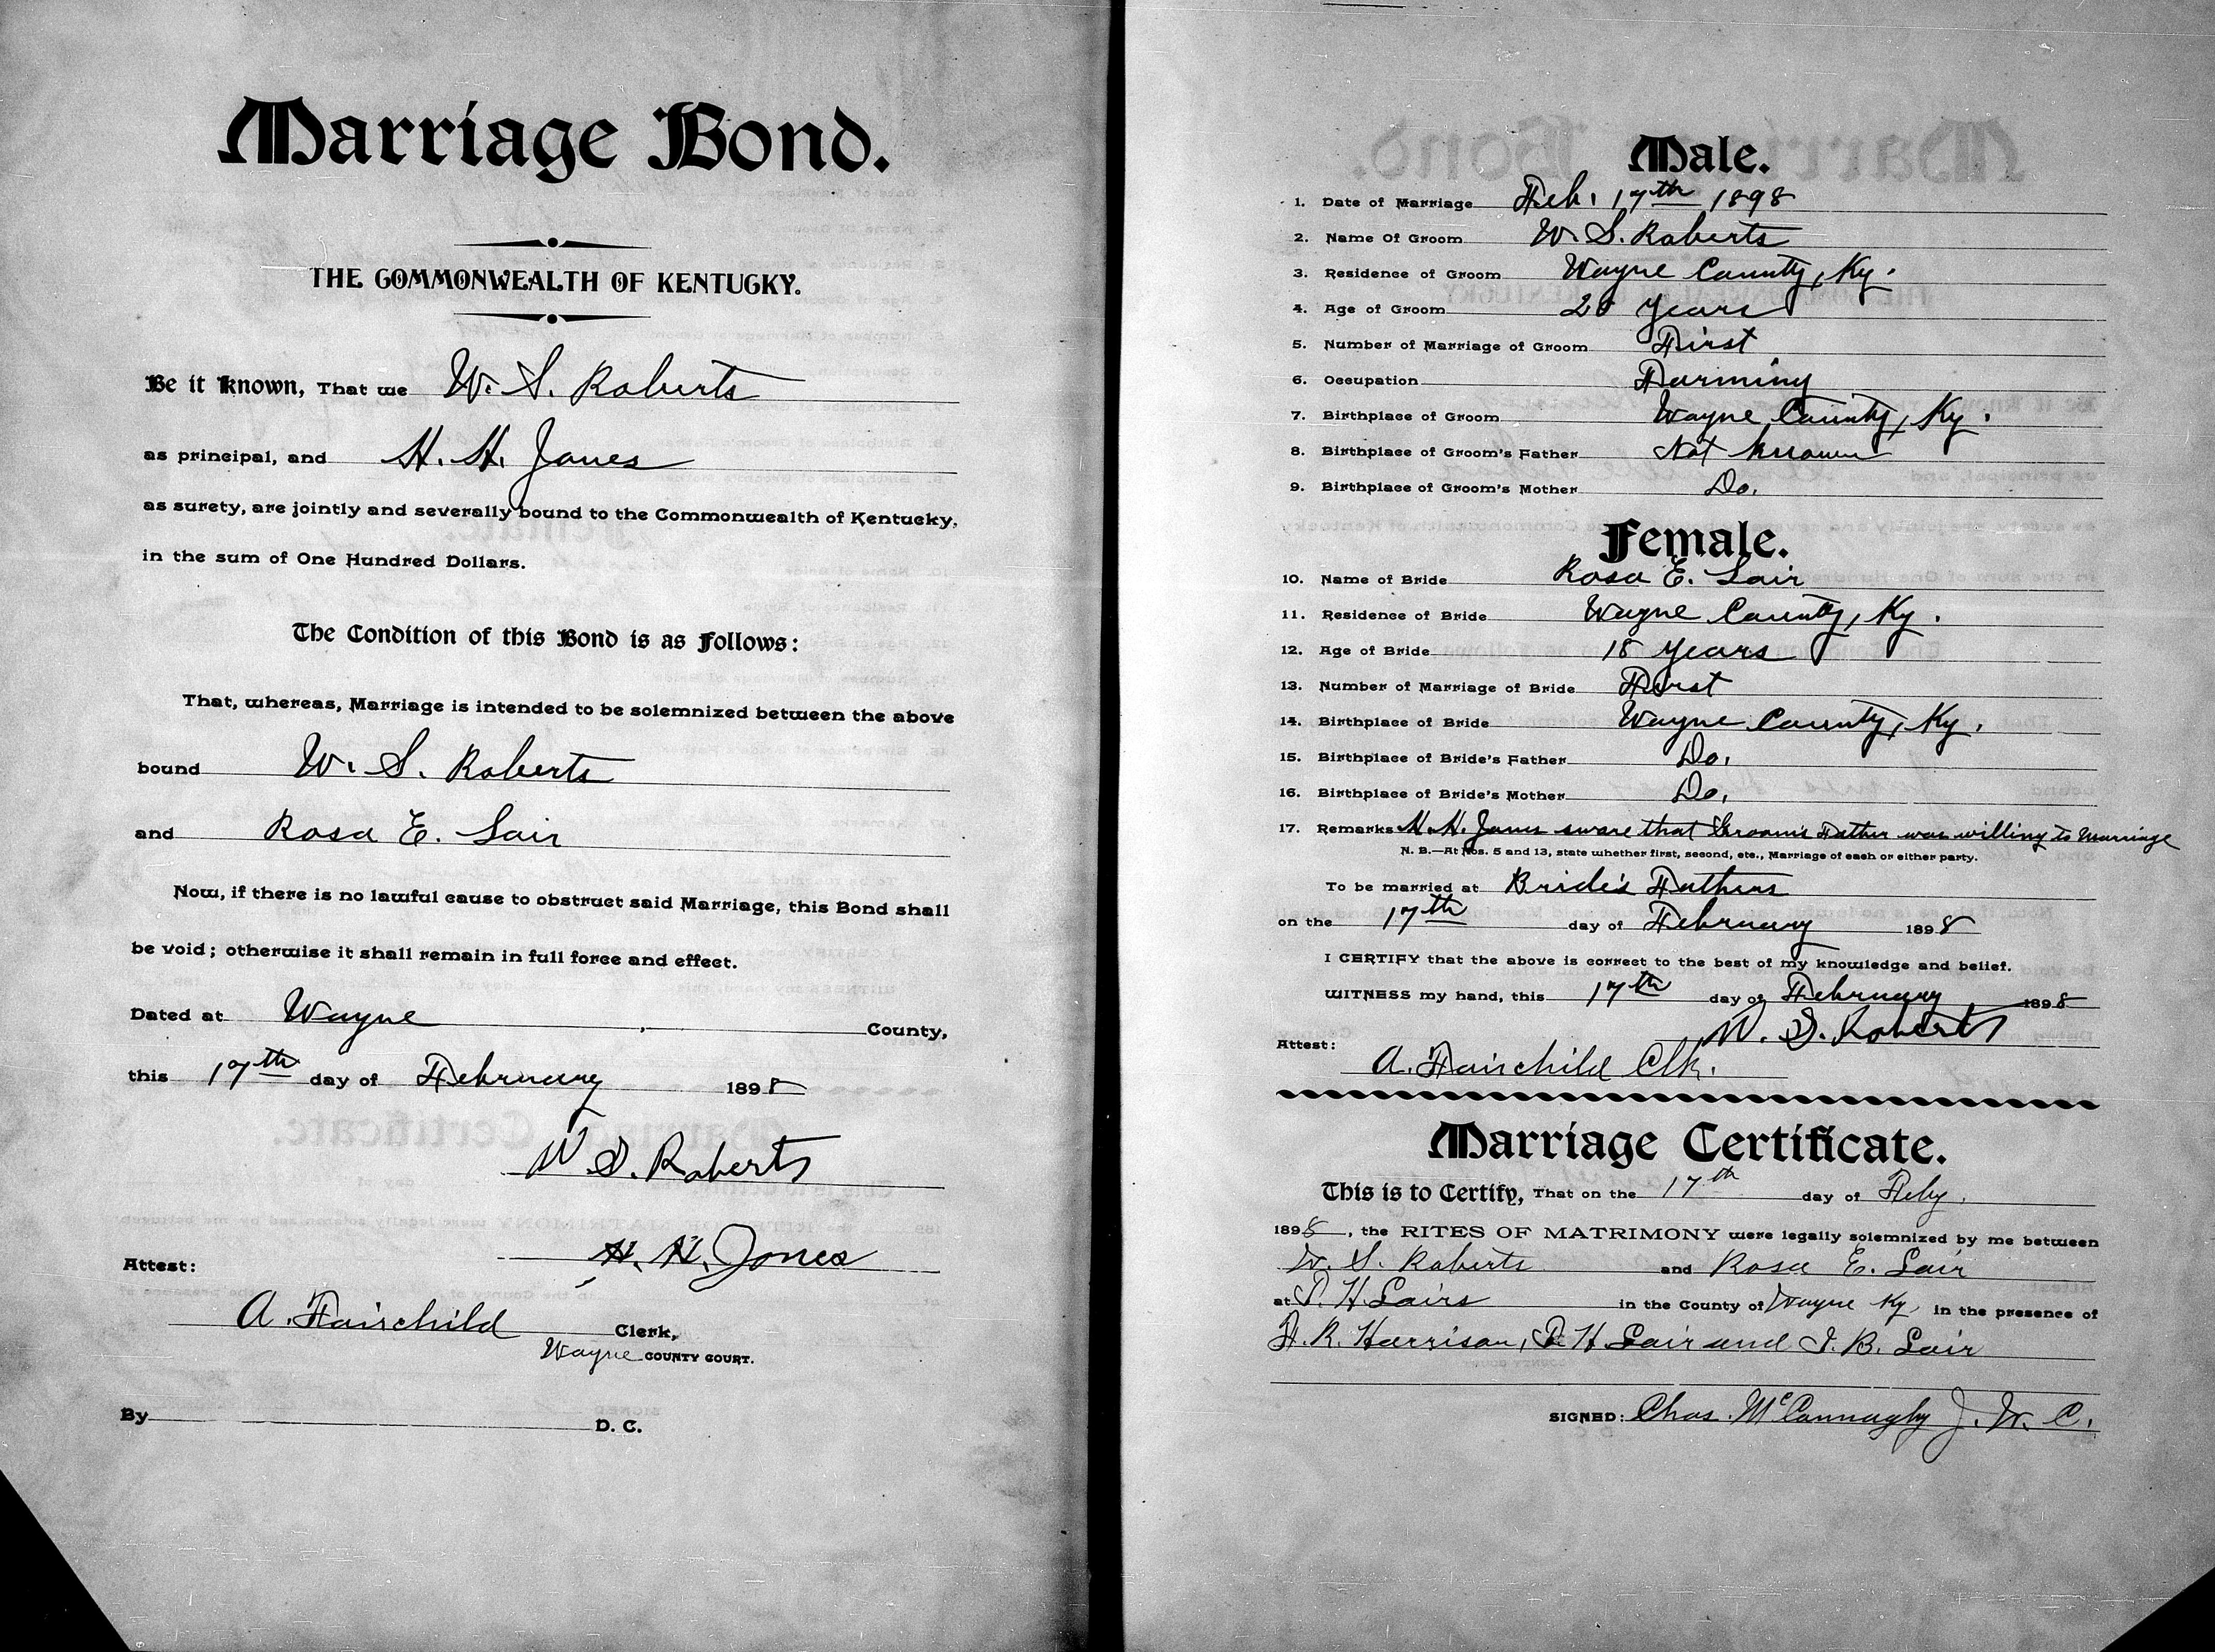 Marriage Bond.
THE COMMONWEALTH OF KENTUCKY.
Be it Known, That we W. S. Roberts
as principal, and H. H. Jones
as surety, are jointly and severally bound to the Commonwealth of Kentucky,
in the sum of One Hundred Dollars.
The Condition of this Bond is as Follows:
That, whereas, Marriage is intended to be solemnized between the above
bound W. S. Roberts
and Rosa E. Lair
Now, if there is no lawful cause to obstruct said Marriage, this Bond shall
be void; otherwise it shall remain in full force and effect.
Dated at Wayne County,
this 17th day of February 1898
W S. Roberts
H. H. Jones
Attest:
A. Fairchild Clerk,
Wayne COUNTY COURT.
By D. C.
Male.
1. Date of Marriage Feb. 17th 1898
2. Name Of Groom W. S. Roberts
3. Residence of Groom Wayne County, Ky.
4. Age of Groom 20 years
5. Number of Marriage of Groom First
6. Occupation Farming
7. Birthplace of Groom Wayne County, Ky.
8. Birthplace of Groom's Father Not Known
9. Birthplace of Groom's Mother Do.
Female.
10. Name of Bride Rosa E. Lair
11. Residence of Bride Wayne County, Ky.
12. Age of Bride 18 years
13. Number of Marriage of Bride First
14. Birthplace of Bride Wayne County, Ky.
15. Birthplace of Bride's Father Do.
16. Birthplace of Bride's Mother Do.
17. Remarks H. H. Jones sware that Groom's Father was willing to Marriage
N. B.—At Nos. 5 and 13, state whether first, second, etc., Marriage of each or either party.
To be married at Bride's Fathers
on the 17th day of February 1898
I CERTIFY that the above is correct to the best of my knowledge and belief.
WITNESS my hand, this 17th day of February 1898
W. S. Roberts
Attest:
A. Fairchild Clk.
Marriage Certificate.
This is to Certify, That on the 17th day of Feby.
1898, the RITES OF MATRIMONY were legally solemnized by me between
W. S. Roberts and Rosa E. Lair
at P. H. Lairs in the County of Wayne Ky, in the presence of
F. R. Harrison, P. H Lair and I. B. Lair
SIGNED: Chas. McConnaghy J. W. C.